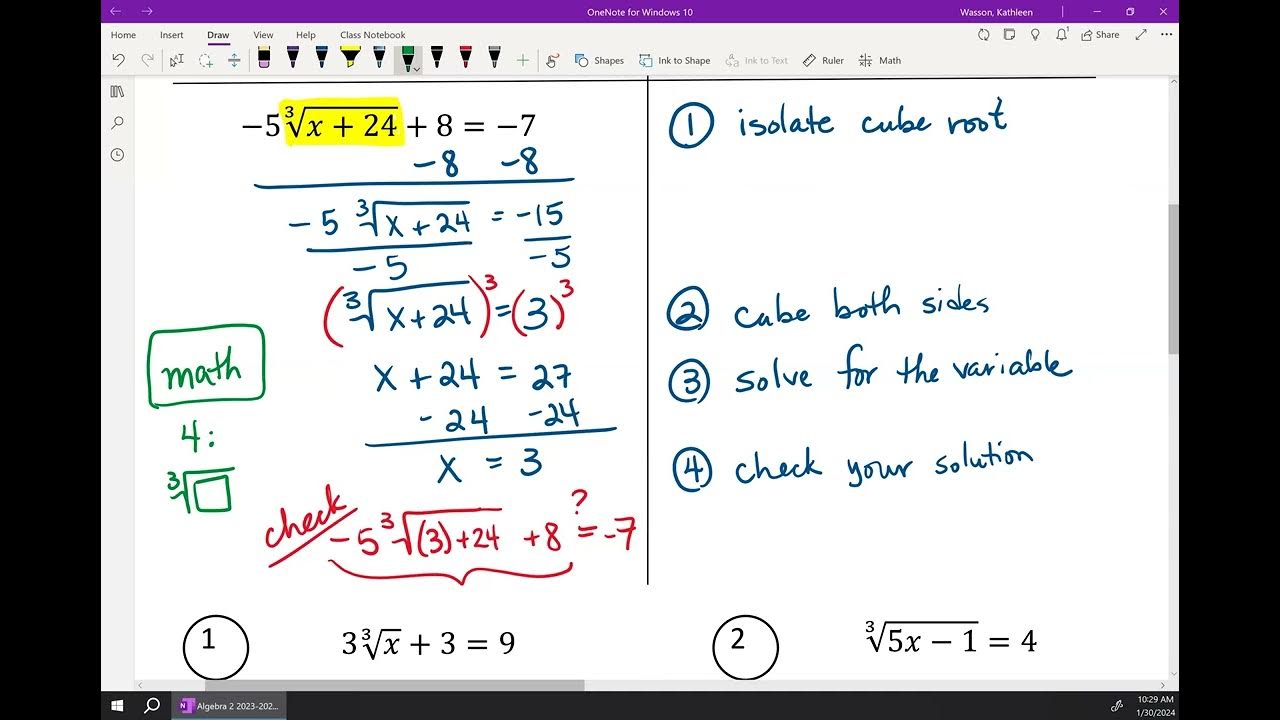 OneNote for Windows 10
Wasson, Kathleen
Home Insert Draw View Help Class Notebook
Share
Shapes Ink to Shape Ink to Text Ruler Math
−5∛(x + 24) + 8 = −7
−8 −8
−5 ∛(x+24) = −15
−5 −5
(∛(x+24))³ = (3)³
x + 24 = 27
- 24 -24
x = 3
check
-5 ∛((3)+24) +8 ≟ -7
math
4:
∛□
① isolate cube root
② cube both sides
③ solve for the variable
④ check your solution
1 3∛x + 3 = 9
2 ∛(5x − 1) = 4
Algebra 2 2023-202...
10:29 AM
1/30/2024